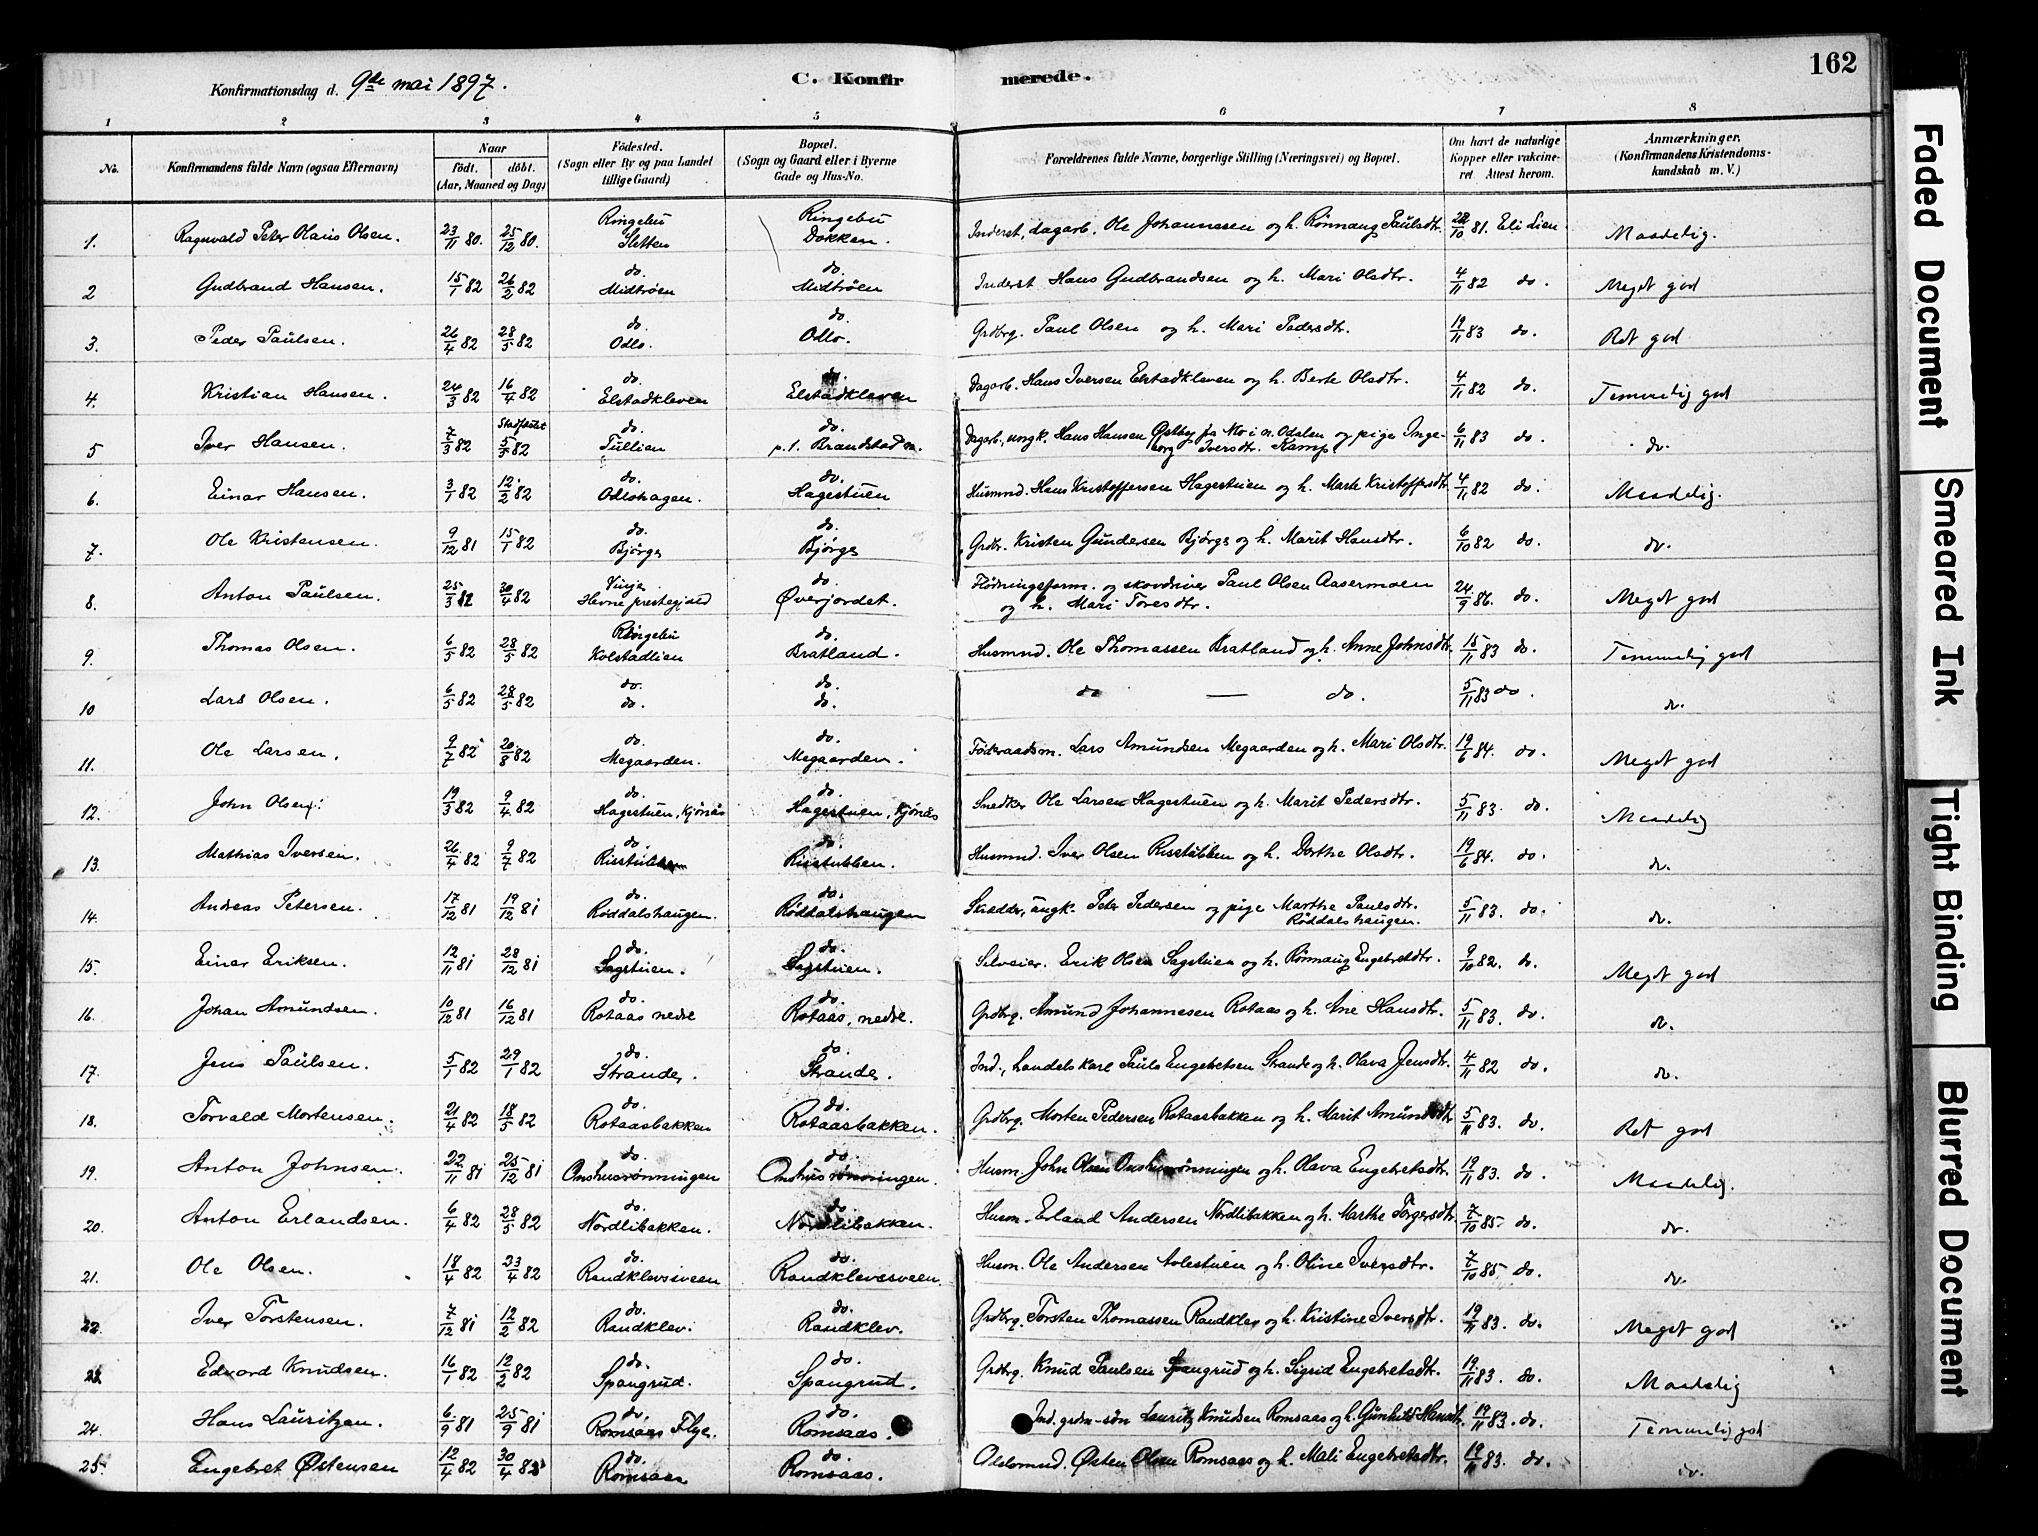 162
Konfirmationsdag d. 9de mai 1897.
C. Konfirmerede.
1 2 3 4 5 6 7 8
No. Konfirmandens fulde Navn (ogsaa Efternavn) Naar födt. döbt. (Aar, Maaned og Dag) Födested. (Sogn eller By og paa Landet tillige Gaard) Bopæl. (Sogn og Gaard eller i Byerne Gade og Hus-No. Forældrenes fulde Navne, borgerlige Stilling (Næringsvei) og Bopæl. Om havt de naturlige Kopper eller vakcineret Attest herom. Anmærkninger. (Konfirmandens Kristendomskundskab m. V.)
1. Ragnvald Peter Olaus Olsen. 23/11 80. 25/12 80. Ringebu Sletten Ringebu Dokken. Inderst, dagarb. Ole Johannesen og h. Rønnaug Paulsdtr. 28/10 81. Eli Lien Maadelig.
2 Gudbrand Hansen. 15/1 82 26/2 82 do. Midtrøen do. Midtrøen Inderst Hans Gudbrandsen og h. Mari Olsdtr. 4/11 82 do. Meget god
3. Peder Paulsen. 26/4 82 28/5 82 do. Odlo. do. Odlo. Grdbrg. Paul Olsen og h. Mari Pedersdtr. 19/11 83 do. Ret god
4. Kristian Hansen. 24/3 82 16/4 82 do. Elstadkleven do. Elstadkleven Dagarb. Hans Iversen Elstadkleven og h. Berte Olsdtr. 4/11 82 do. Temmelig god
5 Iver Hansen. 7/3 82 Stadfæstet 5/5 82 do. Tullien do. p.t. Brandstad n. Dagarb, ungk. Hans Hansen Østby fra Mo i n. Odalen og pige Ingeborg Iversdtr. Kamp 6/11 83 do. do.
6. Einar Hansen. 3/1 82 12/2 82 do. Odlohagen. do. Hagestuen Husmnd. Hans Kristoffersen Hagestuen og h. Marte Kristoffersdtr. 4/11 82 do. Maadelig.
7. Ole Kristensen. 9/12 81 15/1 82 do. Bjørge do. Bjørge Grdbr. Kristen Gundersen Bjørge og h. Marit Hansdtr. 6/10 82 do. do.
8. Anton Paulsen. 25/3 82 30/4 82 Vinje Hevne prestegjæld do. Øverjordet. og skovdriver Paul Olsen Aasermoen og h. Mari Toresdtr. 24/9 86. do. Meget god
9. Thomas Olsen. 6/5 82 28/5 82 Ringebu Kolstadlien do. Bratland. Husmnd. Ole Thomassen Bratland og h. Anne Johnsdtr. 15/11 83 do. Temmelig god
10 Lars Olsen. 6/5 82 28/5 82 do. do. do. do. do — do. 5/11 83 do. do.
11. Ole Larsen. 9/7 82 20/8 82 do. Megaarden. do. Megaarden. Føderaadsm. Lars Amundsen Megaarden og h. Mari Olsdtr. 19/6 84. do. Meget god
12. John Olsen. 19/3 82 9/4 82 do. Hagestuen, Kjønås do. Hagestuen, Kjønås Snedker Ole Larsen Hagestuen og h. Marit Pedersdtr. 5/11 83. do. Maadelig
13 Mathias Iversen. 26/4 82 9/7 82 do. Risstubben do. Risstubben. Husmnd. Iver Olsen Risstubben og h. Dorthe Olsdtr. 19/6 84. do. do.
14. Andreas Petersen. 17/12 81 19/12 81 do. Røddalshaugen. do. Røddalshaugen Skrædder, ungk. Peter Pedersen og pige Marthe Paulsdtr. Røddalshaugen. 5/11 83. do. do.
15. Einar Eriksen. 12/11 81 28/12 81 do. Sagstuen. do. Sagstuen. Selveier. Erik Olsen Sagstuen og h. Rønnaug Engebretsdtr. 9/10 82. do. Meget god
16. Johan Amundsen. 10/12 81 16/12 81 do. Rotaas nedre do. Rotaas, nedre. Grdbrg. Amund Johannesen Rotaas og h. Ane Hansdtr. 5/11 83. do. do.
17. Jens Paulsen. 5/1 82 29/1 82 do. Strande. do. Strande. Ind., Landelskarl Paul Engebretsen Strande og h. Olava Jensdtr. 4/11 82 do. do.
18. Torvald Mortensen. 21/4 82 18/5 82 do. Rotaasbakken do. Rotaasbakken. Grdbrg. Morten Pedersen Rotaasbakken og h. Marit Amundsdtr. 5/11 83. do. Ret god
19. Anton Johnsen. 22/11 81 25/12 81 do. Onshusrønningen do. Onshusrønningen. Husm. John Olsen Onshusrønningen og h. Olava Engebretsdtr. 19/11 83. do. Maadelig.
20. Anton Erlandsen. 6/4 82 28/5 82 do. Nordlibakken. do. Nordlibakken. Husm. Erland Andersen Nordlibakken og h. Marthe Torgersdtr. 7/10 85. do. do.
21. Ole Olsen. 18/4 82 23/4 82 do. Randklevsveen do. Randklevsveen. Husm. Ole Andersen Aolestuen og h. Oline Iversdtr. 7/10 85. do. do.
22. Iver Torstensen. 7/12 81 12/2 82 do. Randklev. do. Randklev. Grdbrg. Torsten Thomassen Randklev og h. Kristine Iversdtr. 19/11 83. do. Meget god
23. Edvard Knudsen. 16/1 82 12/2 82 do. Spangrud. do. Spangrud. Grdbrg. Knud Paulsen Spangrud og h. Sigrid Engebretsdtr. 19/11 83. do. Maadelig
24. Hans Lauritzen. 6/9 81 25/9 81 do. Romsaas Flye. do. Romsaas. Ind. grdm-søn Lauritz Knudsen Romsaas og h. Gunhild Hansdtr. 19/11 83. do. Temmelig god
25. Engebret Østensen 12/4 82 30/4 82 do. Romsaas do. Romsaas. Østen Olsen Romsaas og h. Mali Engebretsdtr. 19/11 83. do. do.
Faded Document
Smeared Ink
Tight Binding
Blurred Document